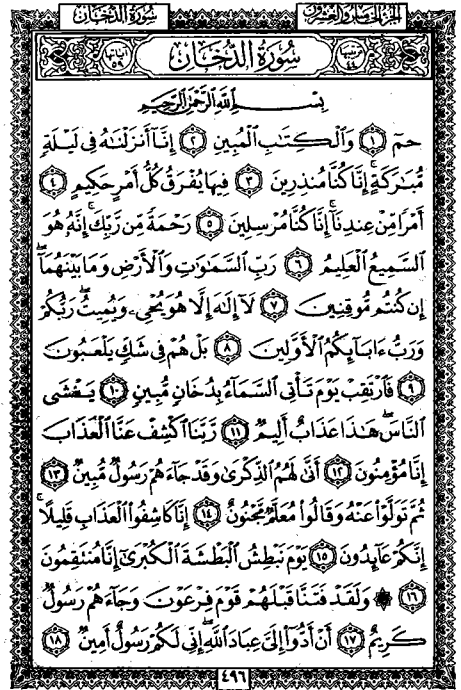 سُورَةُ الدُّخَانِ
الجُزْءُ الخَامِسُ وَالعِشْرُونَ
سُورَةُ الدُّخَانِ
آياتها ٥٩
ترتيبها ٤٤
بِسْمِ اللَّهِ الرَّحْمَٰنِ الرَّحِيمِ
حمٓ ١ وَالْكِتَابِ الْمُبِينِ ٢ إِنَّا أَنزَلْنَاهُ فِي لَيْلَةٍ
مُّبَارَكَةٍ إِنَّا كُنَّا مُنذِرِينَ ٣ فِيهَا يُفْرَقُ كُلُّ أَمْرٍ حَكِيمٍ ٤
أَمْرًا مِّنْ عِندِنَا إِنَّا كُنَّا مُرْسِلِينَ ٥ رَحْمَةً مِّن رَّبِّكَ إِنَّهُ هُوَ
السَّمِيعُ الْعَلِيمُ ٦ رَبِّ السَّمَاوَاتِ وَالْأَرْضِ وَمَا بَيْنَهُمَا
إِن كُنتُم مُّوقِنِينَ ٧ لَا إِلَٰهَ إِلَّا هُوَ يُحْيِي وَيُمِيتُ رَبُّكُمْ
وَرَبُّ ءَابَائِكُمُ الْأَوَّلِينَ ٨ بَلْ هُمْ فِي شَكٍّ يَلْعَبُونَ
٩ فَارْتَقِبْ يَوْمَ تَأْتِي السَّمَاءُ بِدُخَانٍ مُّبِينٍ ١٠ يَغْشَى
النَّاسَ هَٰذَا عَذَابٌ أَلِيمٌ ١١ رَّبَّنَا اكْشِفْ عَنَّا الْعَذَابَ
إِنَّا مُؤْمِنُونَ ١٢ أَنَّىٰ لَهُمُ الذِّكْرَىٰ وَقَدْ جَاءَهُمْ رَسُولٌ مُّبِينٌ ١٣
ثُمَّ تَوَلَّوْا عَنْهُ وَقَالُوا مُعَلَّمٌ مَّجْنُونٌ ١٤ إِنَّا كَاشِفُوا الْعَذَابِ قَلِيلًا
إِنَّكُمْ عَائِدُونَ ١٥ يَوْمَ نَبْطِشُ الْبَطْشَةَ الْكُبْرَىٰ إِنَّا مُنتَقِمُونَ
١٦ ۞ وَلَقَدْ فَتَنَّا قَبْلَهُمْ قَوْمَ فِرْعَوْنَ وَجَاءَهُمْ رَسُولٌ
كَرِيمٌ ١٧ أَنْ أَدُّوا إِلَيَّ عِبَادَ اللَّهِ إِنِّي لَكُمْ رَسُولٌ أَمِينٌ ١٨
٤٩٦